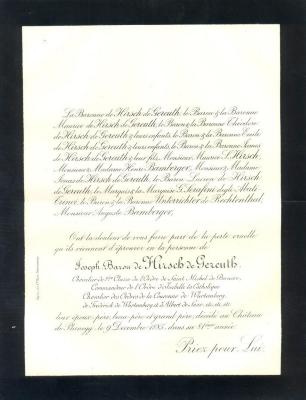 La Baronne de Hirsch de Gereuth, le Baron & la Baronne
Maurice de Hirsch de Gereuth, le Baron & la Baronne Théodore
de Hirsch de Gereuth & leurs enfants, le Baron & la Baronne Emile
de Hirsch de Gereuth & leurs enfants, le Baron & la Baronne James
de Hirsch de Gereuth & leur fils, Monsieur Maurice Hirsch,
Monsieur & Madame Henri Bamberger, Monsieur & Madame
de Hirsch de Gereuth, le Baron Lucien de Hirsch
de Gereuth, le Marquis & la Marquise G. Serafini degli Abati
le Baron & la Baronne Unterrichter de Rechtenthal,
Monsieur Auguste Bamberger,
Ont la douleur de vous faire part de la perte cruelle
qu'ils viennent d'éprouver en la personne de
Joseph Baron de Hirsch de Gereuth,
Chevalier de 1ère Classe de l'Ordre de Saint Michel de Bavière,
Commandeur de l'Ordre d'Isabelle la Catholique
Chevalier des Ordres de la Couronne de Wurtemberg,
de Frédérick de Wurtemberg & d'Albert de Saxe, etc. etc. etc.
leur époux, père, beau-père et grand père, décédé au Château
de Planegg, le 9 Décembre 1885, dans sa 81ème année.
Priez pour Lui